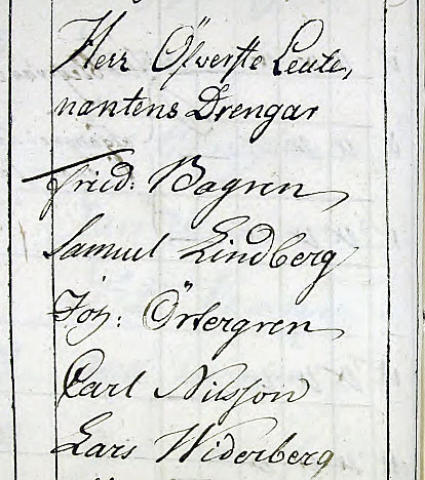 Herr Öfverste Leute,
nantens Drengar
Fried: Bagren
Samuel Lindberg
Joh: Örtergren
Carl Nilsson
Lars Widerberg